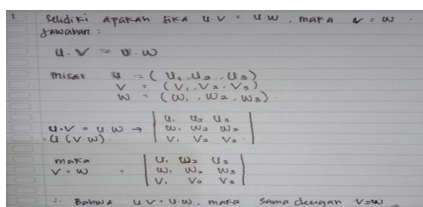 1. Selidiki apakah jika u.v = u.w, maka v = w.
Jawaban :
u.v = u.w
misal u = (u₁, u₂, u₃)
v = (v₁, v₂, v₃)
w = (w₁, w₂, w₃).
u.v = u.w → | u₁ u₂ u₃ |
= u (v.w) | w₁ w₂ w₃ |
| v₁ v₂ v₃ |
maka | u₁ u₂ u₃ |
v - w = | w₁ w₂ w₃ |
| v₁ v₂ v₃ |
∴ Bahwa u v = u w, maka sama dengan v=w